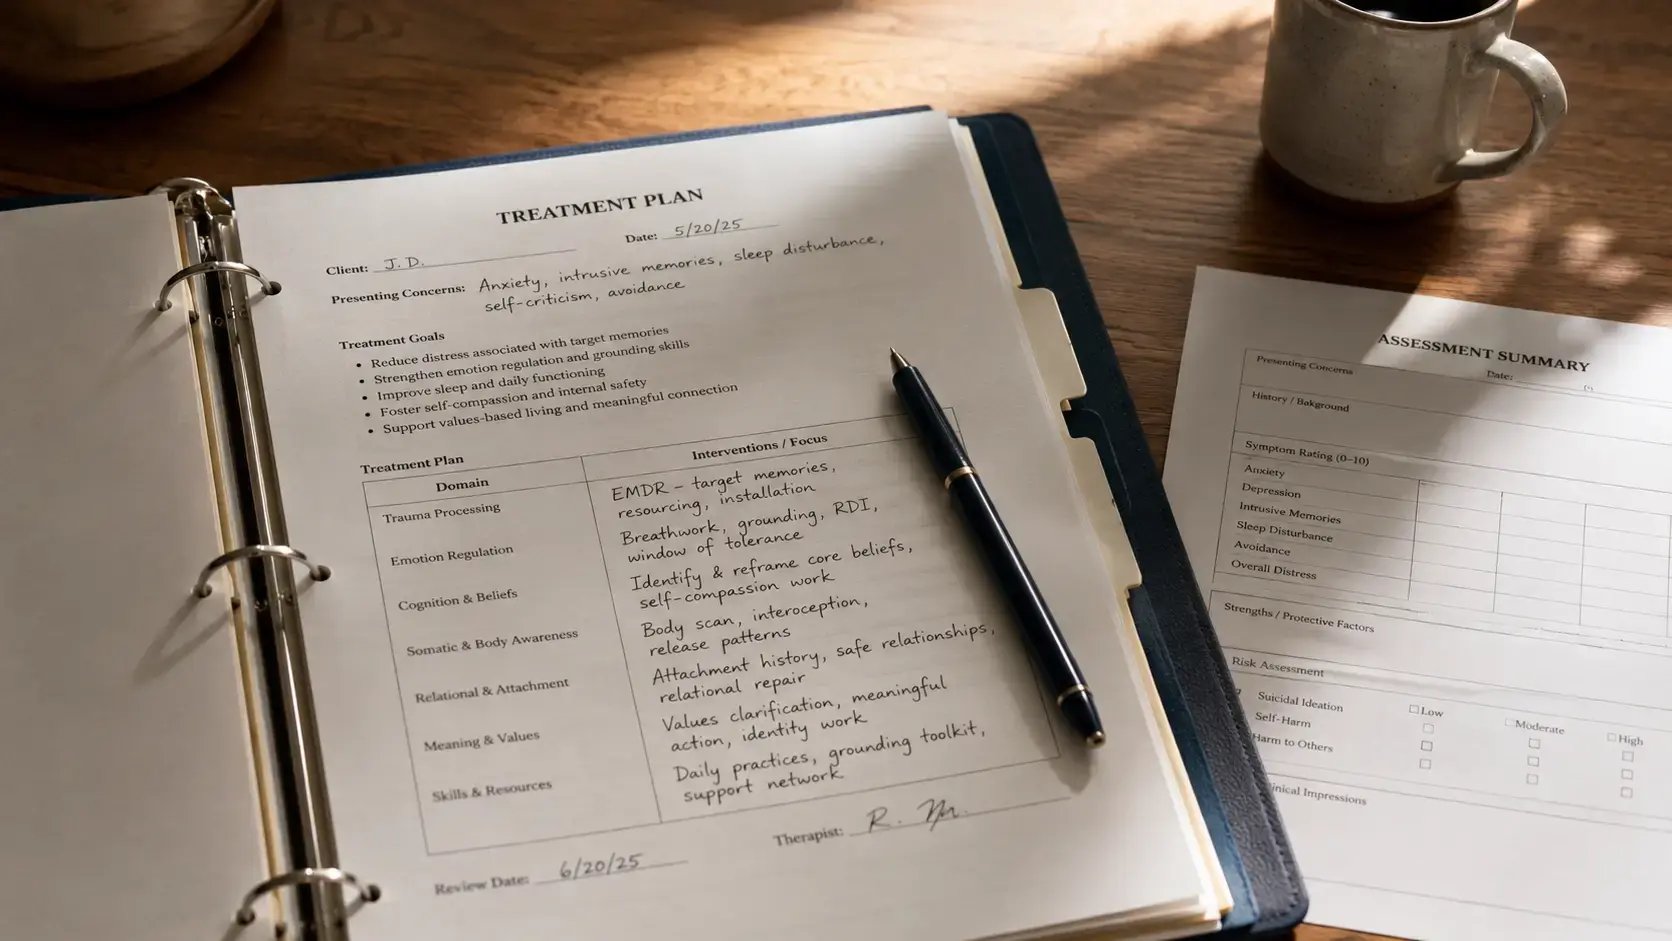 TREATMENT PLAN
Date: 5/20/25
Client: J.D.
Presenting Concerns: Anxiety, intrusive memories, sleep disturbance,
self-criticism, avoidance
Treatment Goals
• Reduce distress associated with target memories
• Strengthen emotion regulation and grounding skills
• Improve sleep and daily functioning
• Foster self-compassion and internal safety
• Support values-based living and meaningful connection
Treatment Plan
Domain Interventions / Focus
Trauma Processing EMDR – target memories,
resourcing, installation
Emotion Regulation Breathwork, grounding, RDI,
window of tolerance
Cognition & Beliefs Identify & reframe core beliefs,
self-compassion work
Somatic & Body Awareness Body scan, interoception,
release patterns
Relational & Attachment Attachment history, safe relationships,
relational repair
Meaning & Values Values clarification, meaningful
action, identity work
Skills & Resources Daily practices, grounding toolkit,
support network
Therapist: R.
Review Date: 6/20/25
ASSESSMENT SUMMARY
Presenting Concerns Date:
History / Bakground
Symptom Rating (0–10)
Anxiety
Depression
Intrusive Memories
Sleep Disturbance
Avoidance
Overall Distress
Strengths / Protective Factors
Risk Assessment
Suicidal Ideation Low Moderate High
Self-Harm
Harm to Others
inical Impressions